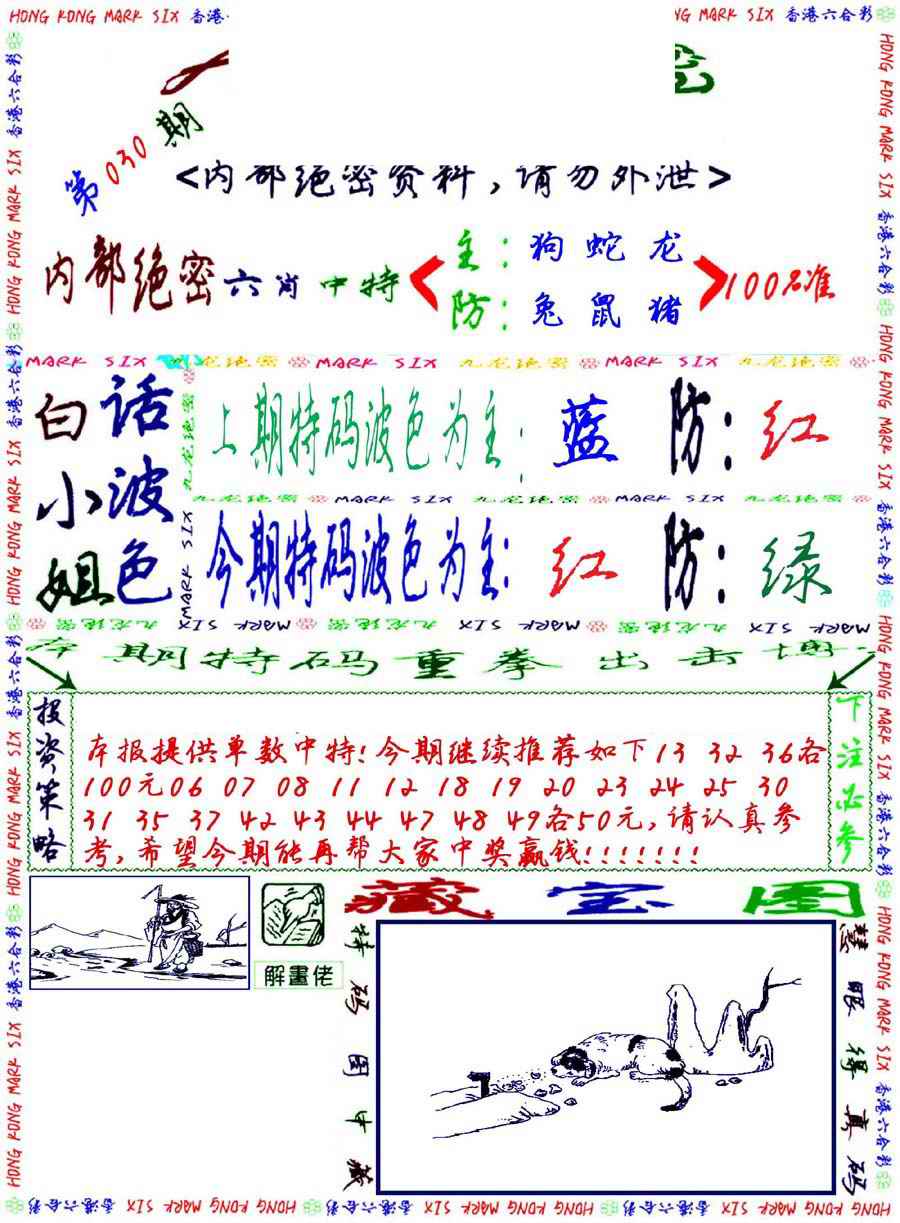 HONG KONG MARK SIX 香港
NG MARK SIX 香港六合彩
第030期
<内部绝密资料,请勿外泄>
内部绝密六肖中特
主:狗 蛇 龙
防:兔 鼠 猪
100%准
MARK SIX 九龙绝密 MARK SIX 九龙绝密 MARK SIX 九龙绝密
白话
小波
姐色
上期特码波色为主:蓝 防:红
九龙绝密 MARK SIX 九龙绝密 MARK SIX 九龙绝密
今期特码波色为主:红 防:绿
MARK SIX 九龙绝密 MARK SIX 九龙绝密 MARK SIX 九龙绝密
本期特码重拳出击
投资策略
本报提供单数中特!今期继续推荐如下13 32 36各
100元06 07 08 11 12 18 19 20 23 24 25 30
31 35 37 42 43 44 47 48 49各50元,请认真参
考,希望今期能再帮大家中奖赢钱!!!!!!!
下注必参
解畫佬
藏宝图
特码图中藏
慧眼得真码
HONG KONG MARK SIX 香港六合彩